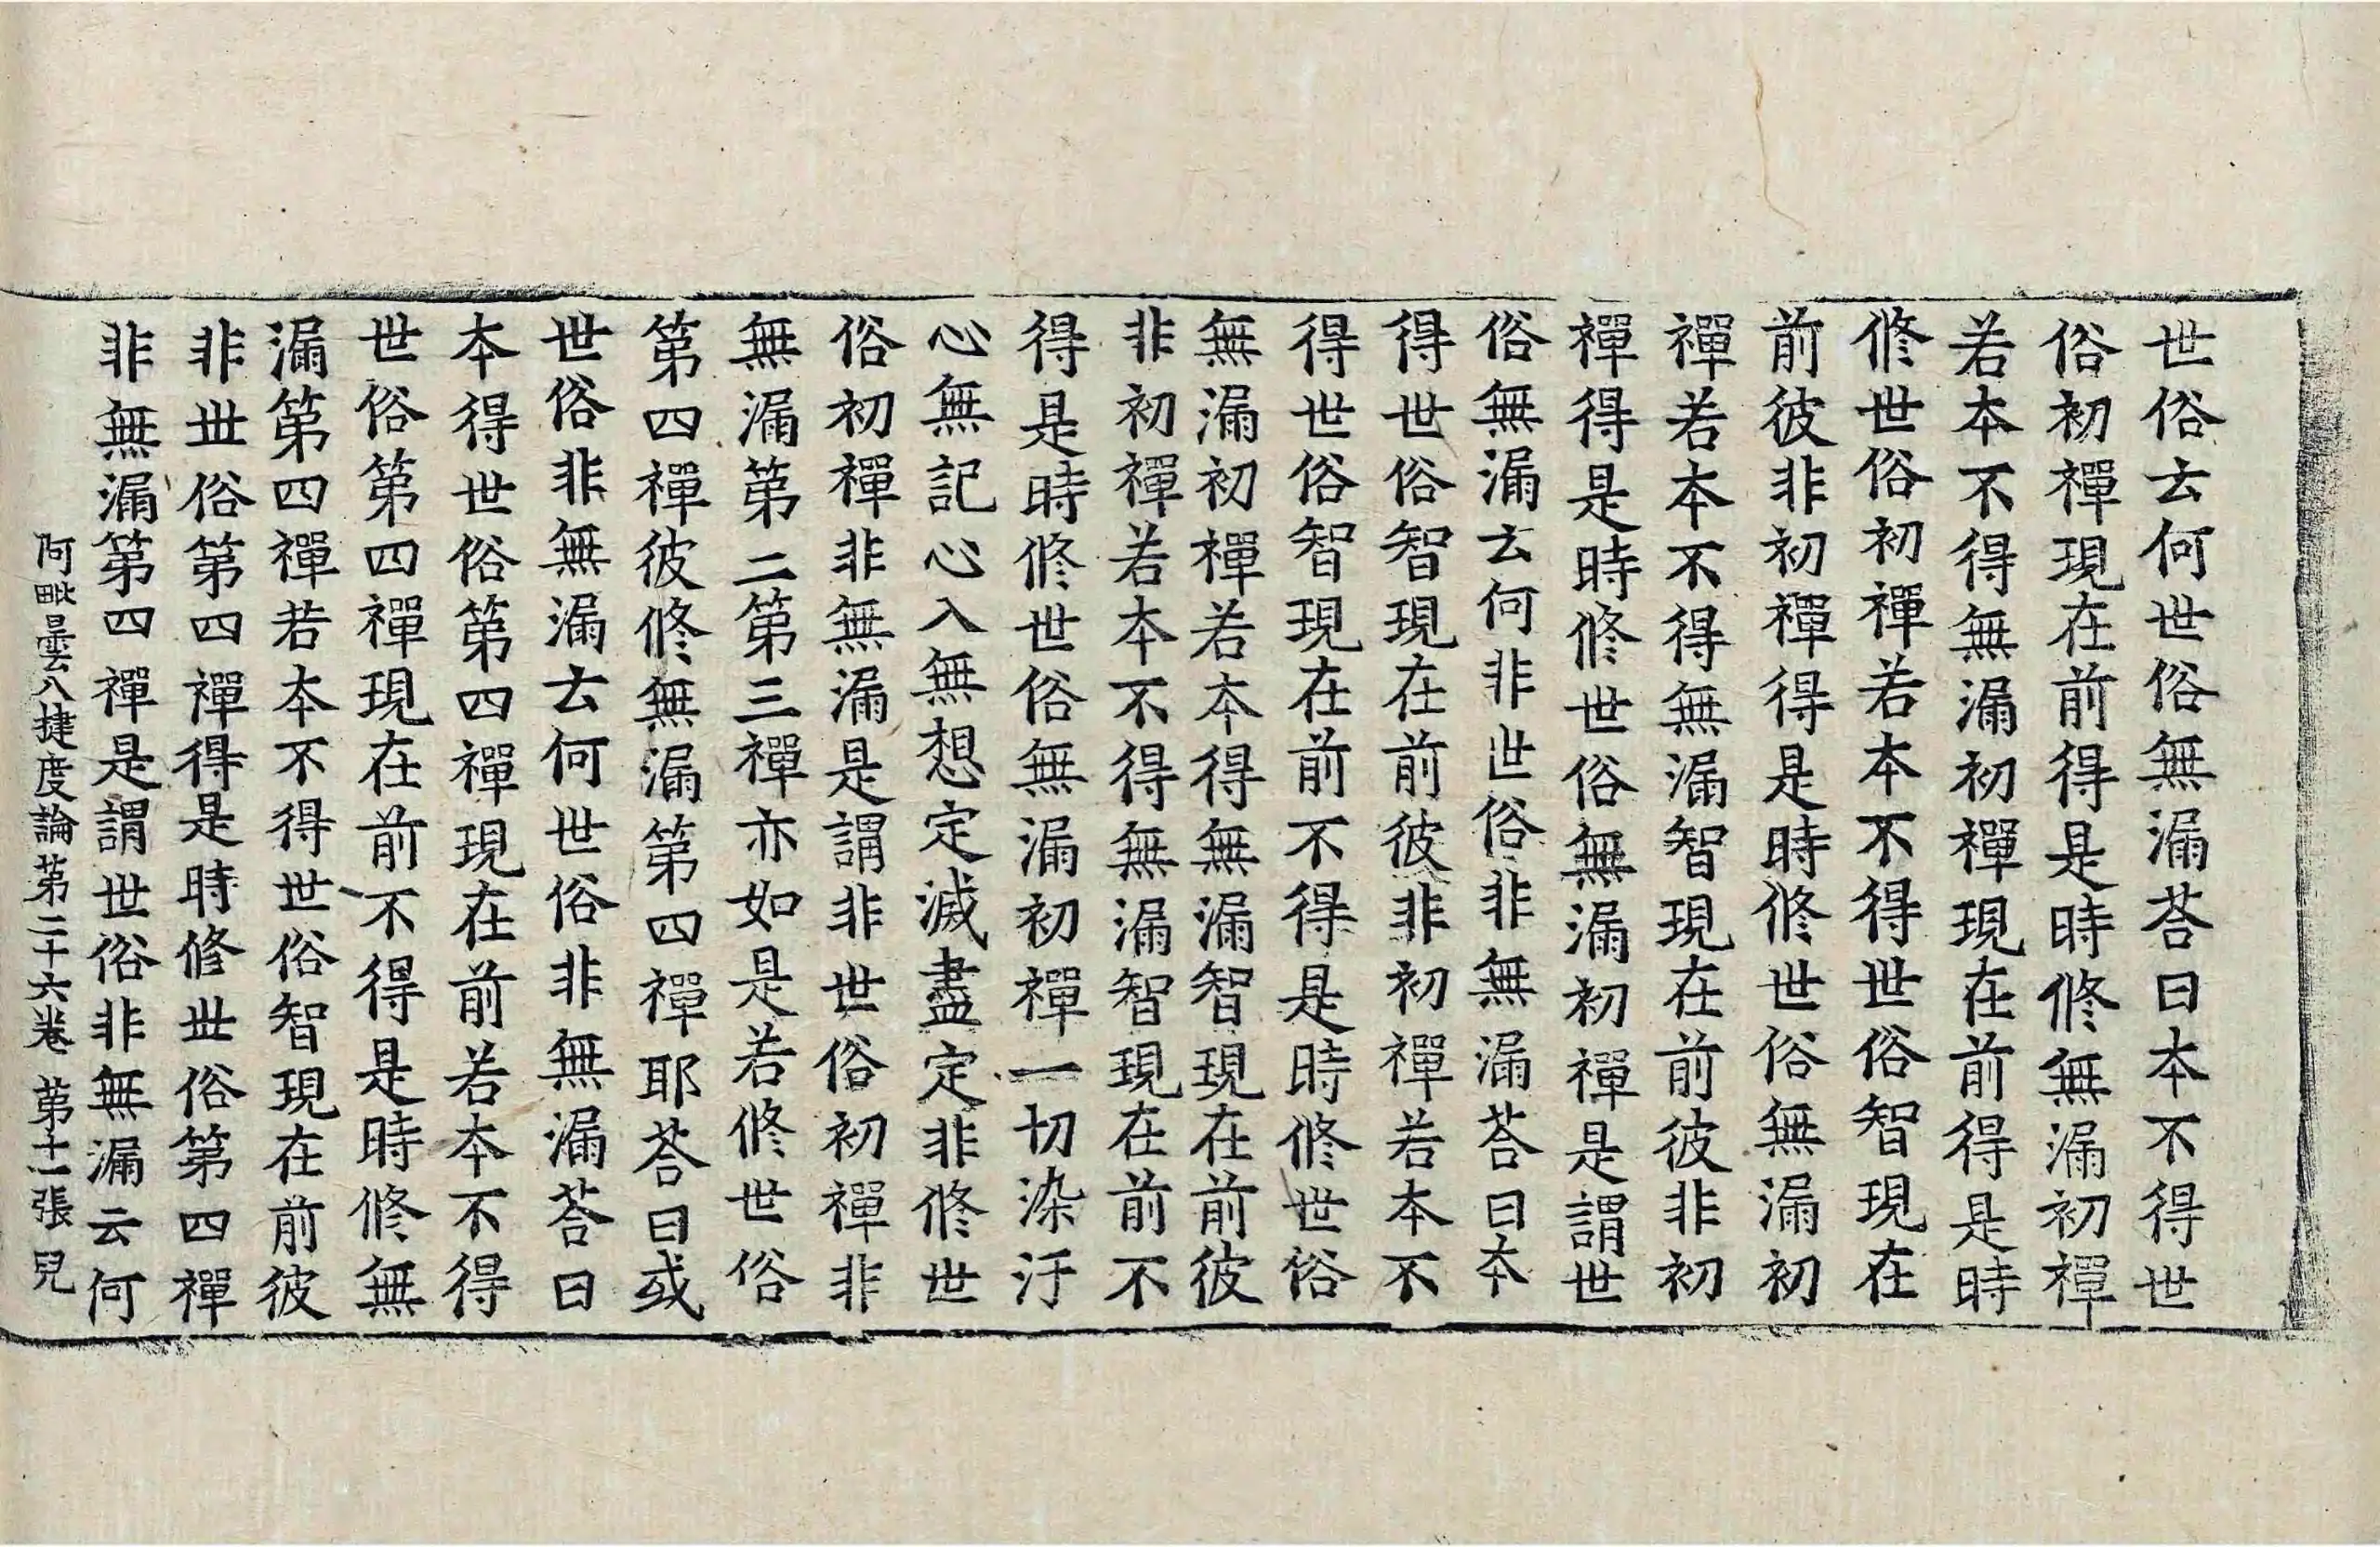 世俗云何世俗無漏荅曰本不得世
俗初禪現在前得是時修無漏初禪
若本不得無漏初禪現在前得是時
修世俗初禪若本不得世俗智現在
前彼非初禪得是時修世俗無漏初
禪若本不得無漏智現在前彼非初
禪得是時修世俗無漏初禪是謂世
俗無漏云何非世俗非無漏荅曰本
得世俗智現在前彼非初禪若本不
得世俗智現在前不得是時修世俗
無漏初禪若本得無漏智現在前彼
非初禪若本不得無漏智現在前不
得是時修世俗無漏初禪一切染汙
心無記心入無想定滅盡定非修世
俗初禪非無漏是謂非世俗初禪非
無漏第二第三禪亦如是若修世俗
第四禪彼修無漏第四禪耶荅曰或
世俗非無漏云何世俗非無漏荅曰
本得世俗第四禪現在前若本不得
世俗第四禪現在前不得是時修無
漏第四禪若本不得世俗智現在前彼
非世俗第四禪得是時修世俗第四禪
非無漏第四禪是謂世俗非無漏云何
阿毗曇八揵度論第二十六卷 第十二張 兒